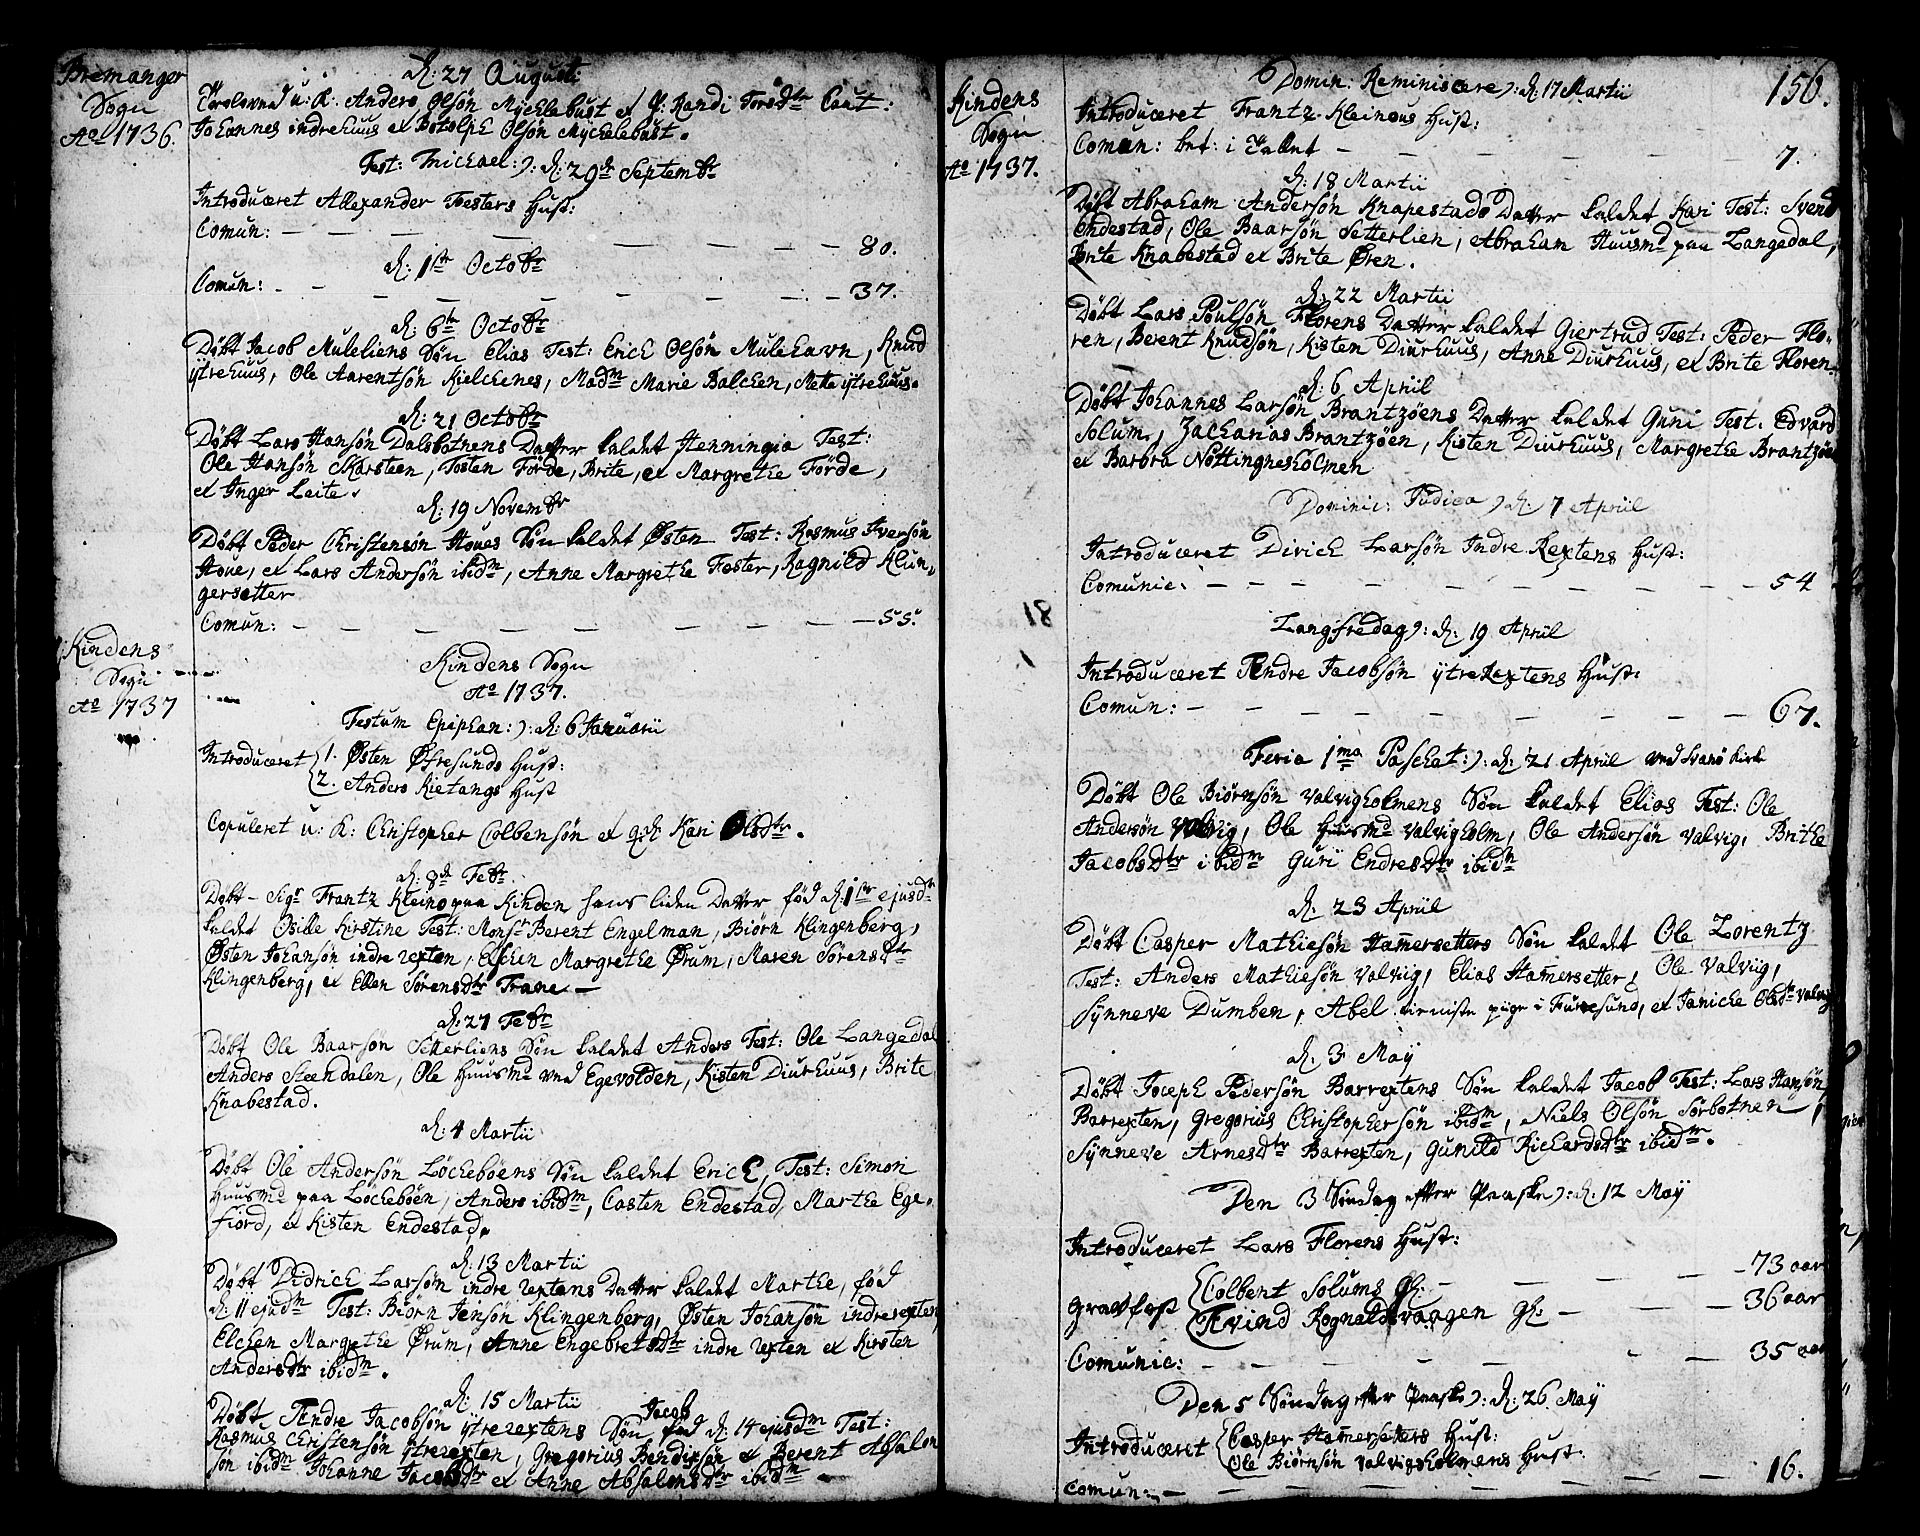 Bremanger
Sogn
Aº 1736.
d: 27 Augusti
Trolovved u: K: Anders Olsön Mycklebust et P: Randi Torsdtr Caut:
Johannes indrehuus et Botolph Olsön Myckelebust.
Fest: Michael: ): d: 29de Septembr
Introduceret Allexander Foesters Hust:
Comun: — — — 80.
d: 1ste Octobr
Comun: — — — 37.
d: 6te Octobr
Döbt Jacob Muleliens Sön Elias Test: Erich Olsön Mulehavn, Knud
ytrehuus, Ole Aarentsön Kielchenes, Madm Marie Balchen, Mette ytrehuus.
d: 21 Octobr
Döbt Lars Hansön Dalsbotnens Datter kaldet Henningia Test:
Ole Hansön Skarsteen, Tosten Förde, Brite, et Margrethe Förde,
et Inger Leite.
d: 19 Novembr
Döbt Peder Christensön Houes Sön kaldet Østen Test: Rasmus Iversön
Houe, et Lars Andersön ibidm, Anne Margrethe Foster, Ragnild Klun-
gersetter
Comun: — — — 55.
Kindens
Sogn
Aº 1737
Kindens Sogn
Aº 1737.
Festum Epiphan: ): d: 6 Januarii
Introduceret 1. Østen Øfresunds Hust:
2. Anders Kietangs Hust
Copuleret u: K: Christopher Colbensön et qde Kari Olsdtr.
d: 8de Febr.
Döbt — Sigr Frantz Kleins paa Kinden hans liden Datter föd d: 1ste ejusdm
kaldet Osille Kirstine Test: Monsr Berent Engelman, Biörn Klingenberg,
Østen Johansön indre rexten, Elschen Margrethe Ørum, Maren Sörensdtr
Klingenberg, et Ellen Sörensdtr Trane —
d: 27 Febr
Döbt Ole Baarsön Setterliens Sön kaldet Anders Test: Ole Langedal
Anders Steendalen, Ole Huusmd ved Egevolden, Kisten Diurhuus, Brite
Knabestad.
d: 4 Martii
Döbt Ole Andersön Löcheböens Sön kaldet Erich, Test: Simon
Huusmd paa Löcheböen, Anders ibidm, Casten Endestad, Marthe Ege-
fiord, et Kisten Endestad.
d: 13 Martii
Döbt Didrich Larsön indre rextens Datter kaldet Marthe, föd
d: 11 ejusdm Test: Biörn Jensön Klingenberg, Østen Johansön indrerexten,
Elchen Margrethe Ørum, Anne Engebretsdtr indre rexten et Kirsten
Andersdtr ibidm.
d: 15 Martii
Döbt Endre Jacobsön ytrerextens Sön Jacob föd d: 14 ejusdm Test:
Rasmus Christensön ytrerexten, Gregorius Bendixsön et Berent Absalon
sön ibidm Johanne Jacobsdtr et Anne Absalonsdtr ibidm
Kindens
Sogn
Aº 1737.
156.
Domin: Reminiscere ): d: 17 Martii
Introduceret Frantz Kleinous Hust:
Comun: bet: i Tallet — — — 7.
d: 18 Martii
Döbt Abraham Andersön Knapestads Datter kaldet Kari Test: Svend
Endestad, Ole Baarsön Setterlien, Abraham Huusmd paa Langedal,
Brite Knabestad et Brite Øren.
d: 22 Martii
Döbt Lars Poulsön Florens Datter kaldet Giertrud Test: Peder Flo-
ren, Berent Knudsön, Kisten Diurhuus, Anne Diurhuus, et Brite Floren.
d: 6 April
Döbt Johannes Larsön Brantzöens Datter kaldet Guni Test: Edvard
Solum, Zacharias Brantzöen, Kisten Diurhuus, Margrethe Brantzöen
et Barbra Nöttingnesholmen
Dominic: Judica ): d: 7 April
Introduceret Dirich Larsön Indre Rextens Hust:
Comunic: — — — 54
Langfredag ): d: 19 April
Introduceret Endre Jacobsön ytre Rextens Hust:
Comun: — — — 67.
Feria 1ma Paschat: ): d: 21 April ved Svanö Kirke
Döbt Ole Biörnsön Valvigholmens Sön kaldet Elias Test: Ole
Andersön Valvig, Ole Huusmd Valvigholm, Ole Andersön Valvig, Brithe
Jacobsdtr ibidm Guri Endresdtr ibidm
d: 23 April
Döbt Casper Mathiesön Hamersetters Sön kaldet Ole Lorentz
Test: Anders Mathiesön Valviig, Elias Hamersetter, Ole Valviig,
Synneve Dumben, Abel tieniste piige i Furesund, et Janiche Olsdtr Valvig
d: 3 May
Döbt Joceph Pedersön Barrextens Sön kaldet Jacob Test: Lars Hansön
Barrexten, Gregorius Christophersön ibidm, Niels Olsön Sörbotnen
Synneve Arnesdtr Barrexten, Gunild Richardsdtr ibidm.
Den 3 Söndag efter Paaske ): d: 12 May
Introduceret Lars Florens Hust:
Gravfæst Colbent Solums gl: — — — 73 aar
Eivind Rognaldsvaagen gl: — — — 36 aar
Comunic: — — — 35 aar
Den 5 Söndag efter Paaske ): d: 26 May
Introduceret Casper Hamersetters Hust:
Ole Biörnsön Valvigsholmens Hust:
Comun: — — — 16.